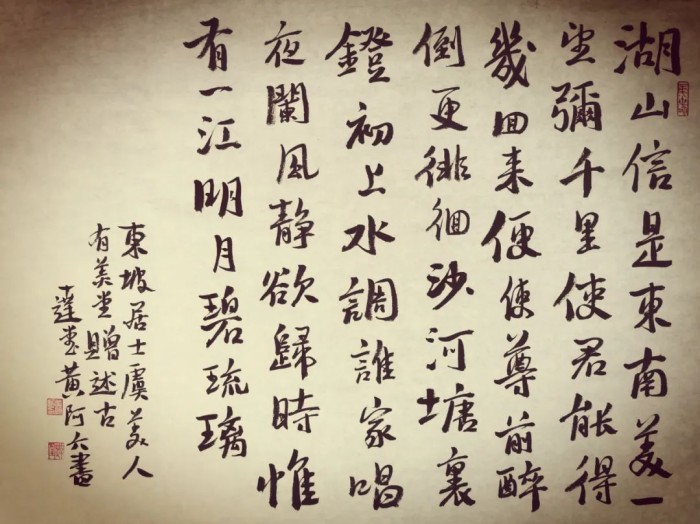 湖山信是東南美一
望彌千里使君能得
幾回来便使尊前醉
倒更徘徊沙河塘裏
鐙初上水調誰家唱
夜闌風静欲歸時惟
有一江明月碧琉璃
東坡居士虞美人
有美堂贈述古
堂黄阿六書